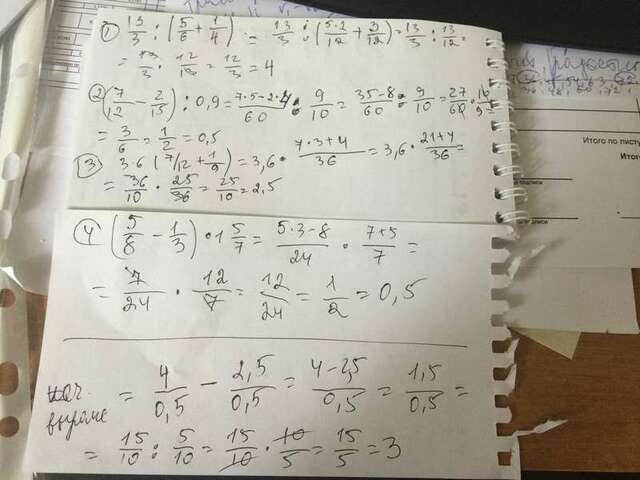 1) 13/3 : (5/6 + 1/4) = 13/3 : (5·2/12 + 3/12) = 13/3 : 13/12 =
= 13/3 · 12/13 = 12/3 = 4
2) (7/12 - 2/15) : 0,9 = 7·5-2·4/60 : 9/10 = 35-8/60 : 9/10 = 27/60 · 10/9 =
= 3/6 = 1/2 = 0,5
3) 3·6 (7/12 + 1/9) = 3,6 · 7·3+4/36 = 3,6 · 21+4/36 =
= 36/10 · 25/36 = 25/10 = 2,5
4) (5/8 - 1/3) · 1 5/7 = 5·3-8/24 · 7+5/7 =
= 7/24 · 12/7 = 12/24 = 1/2 = 0,5
= 4/0,5 - 2,5/0,5 = 4-2,5/0,5 = 1,5/0,5 =
= 15/10 : 5/10 = 15/10 · 10/5 = 15/5 = 3
Итого по
Итого по